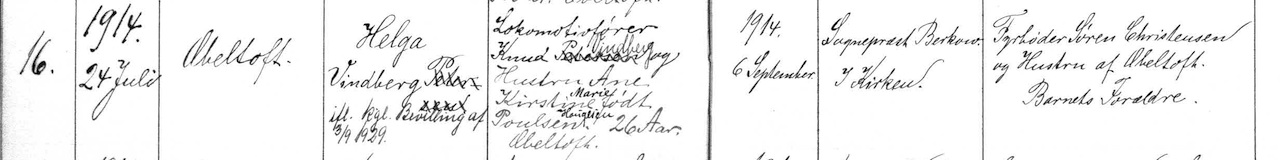 16.
1914.
24 Juli
Æbeltoft.
Helga
Vindberg
ifl. kgl. Bevilling af
3/9 1929.
Lokomotivfører
Knud Petersen Vindberg og
Hustru Ane
Kirstine Marie født
Poulsen 26 Aar.
Æbeltoft.
1914.
6 September
Sognepræst Berkow.
I Kirken.
Fyrbøder Søren Christensen
og Hustru af Æbeltoft.
Barnets Forældre.